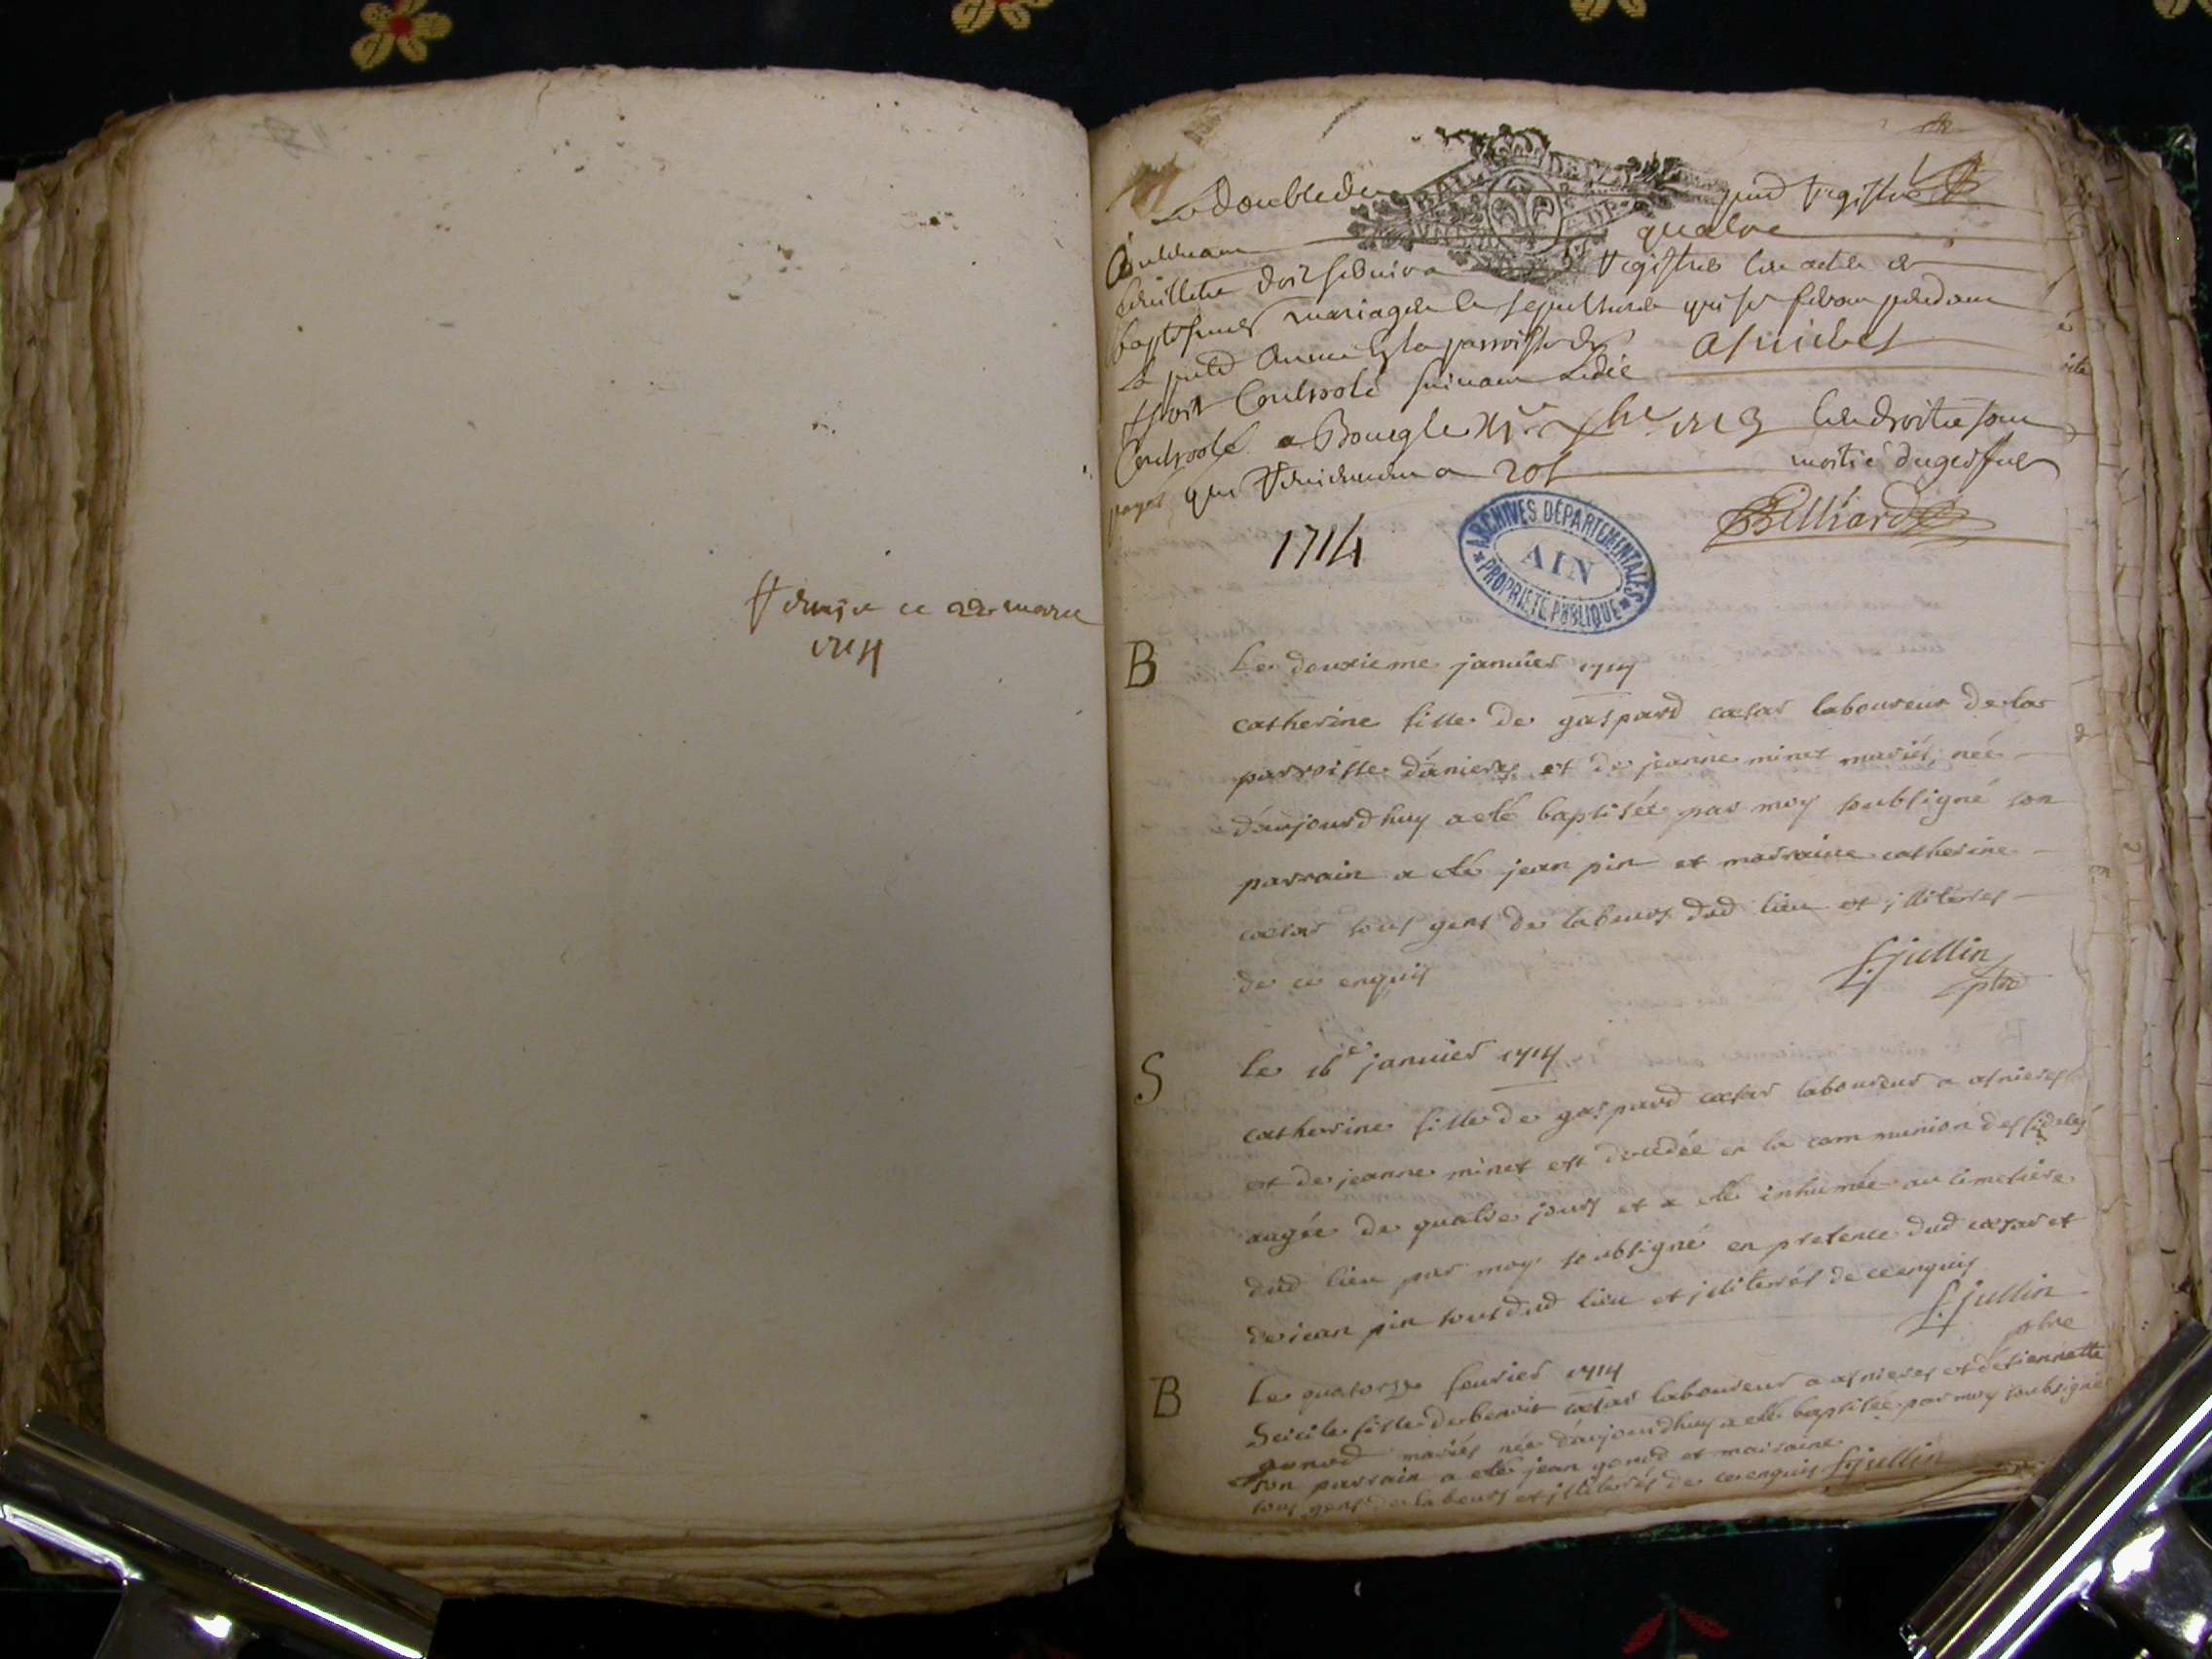 ce 22 mars
1714
Le double du
registre
Contenant
quatre
feuillets
registre les actes de
baptesmes mariages et sepultures qui se feront pendant
la année en la parroisse de
asnieres
Controolé suivant
Controolé a Bourg le 1713 les droits sont
payés qui reviennent a 20s
moitié du
Billiard
1714
ARCHIVES DÉPARTEMENTALES
AIN
PROPRIÉTÉ PUBLIQUE
B
Le deuxieme janvier 1714
catherine fille de gaspard cæsar laboureur de la
parroisse d'anieres et de jeanne minet mariés, née
d'aujourdhuy a eté baptisée par moy soubsigné son
parrain a eté jean pin et marraine catherine
cæsar tous gens de labeurs dud lieu et illiterés
de ce enquis
f. jullin
ptre
S
Le 16e janvier 1714
catherine fille de gaspard cæsar laboureur a asnieres
et de jeanne minet est decedée en la communion des fideles
aagée de quatre jours et a eté inhumée au cimetiere
dud lieu par moy soubsigné en presence dud cæsar et
de jean pin tous dud lieu et illiterés de ce enquis
f. jullin
ptre
B
Le quatorze fevrier 1714
Scicile fille de benoit cæsar laboureur a asnieres et de tiennette
gonod mariés née d'aujourdhuy a eté baptisée par moy soubsigné
son parrain a eté jean gonod et marraine
tous gens de labeurs et illiterés de ce enquis f. jullin